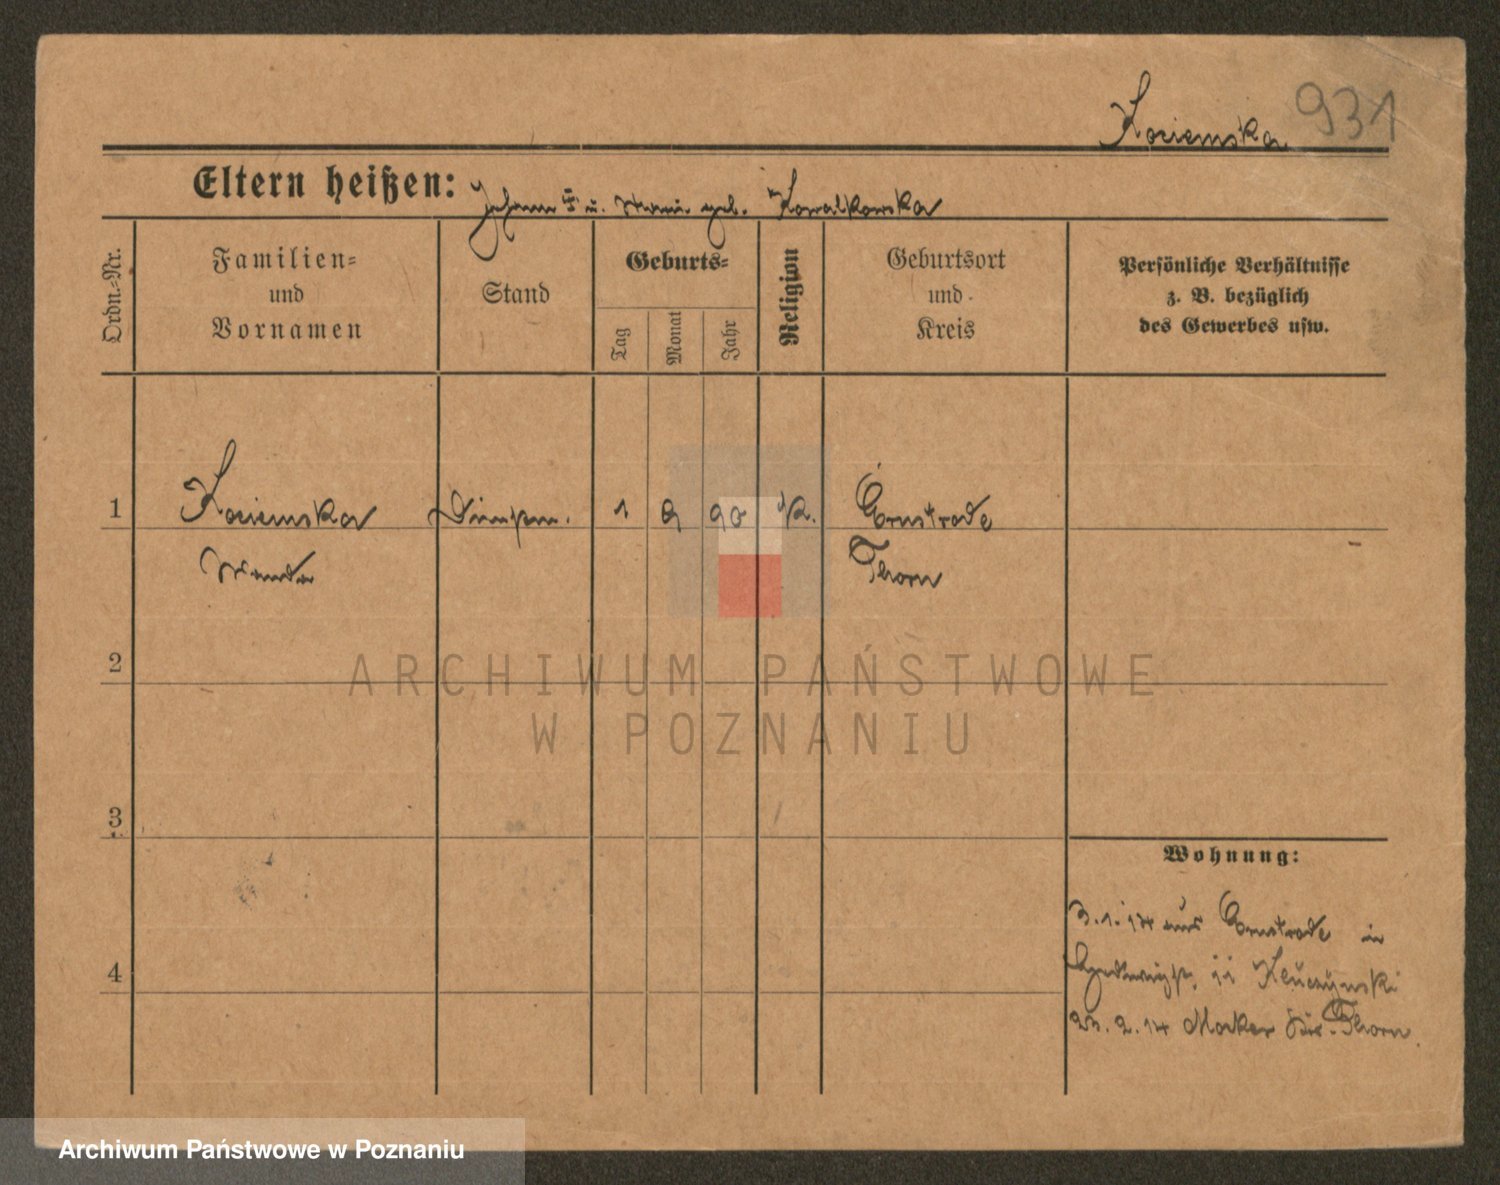 Koziemska 931
Eltern heißen: Johann u. Marie geb. Kowalkowska
Ordn.-Nr.
Familien-
und
Vornamen
Stand
Geburts-
Tag
Monat
Jahr
Religion
Geburtsort
und
Kreis
Persönliche Verhältnisse
z. B. bezüglich
des Gewerbes usw.
1 Koziemska 1 9 90 K. Ernstrode
Wanda Thorn
2
ARCHIWUM PAŃSTWOWE
W POZNANIU
3
Wohnung:
3.1.14 aus Ernstrode in
Kluczynski
4
23.2.14 Mocker Thorn
Archiwum Państwowe w Poznaniu